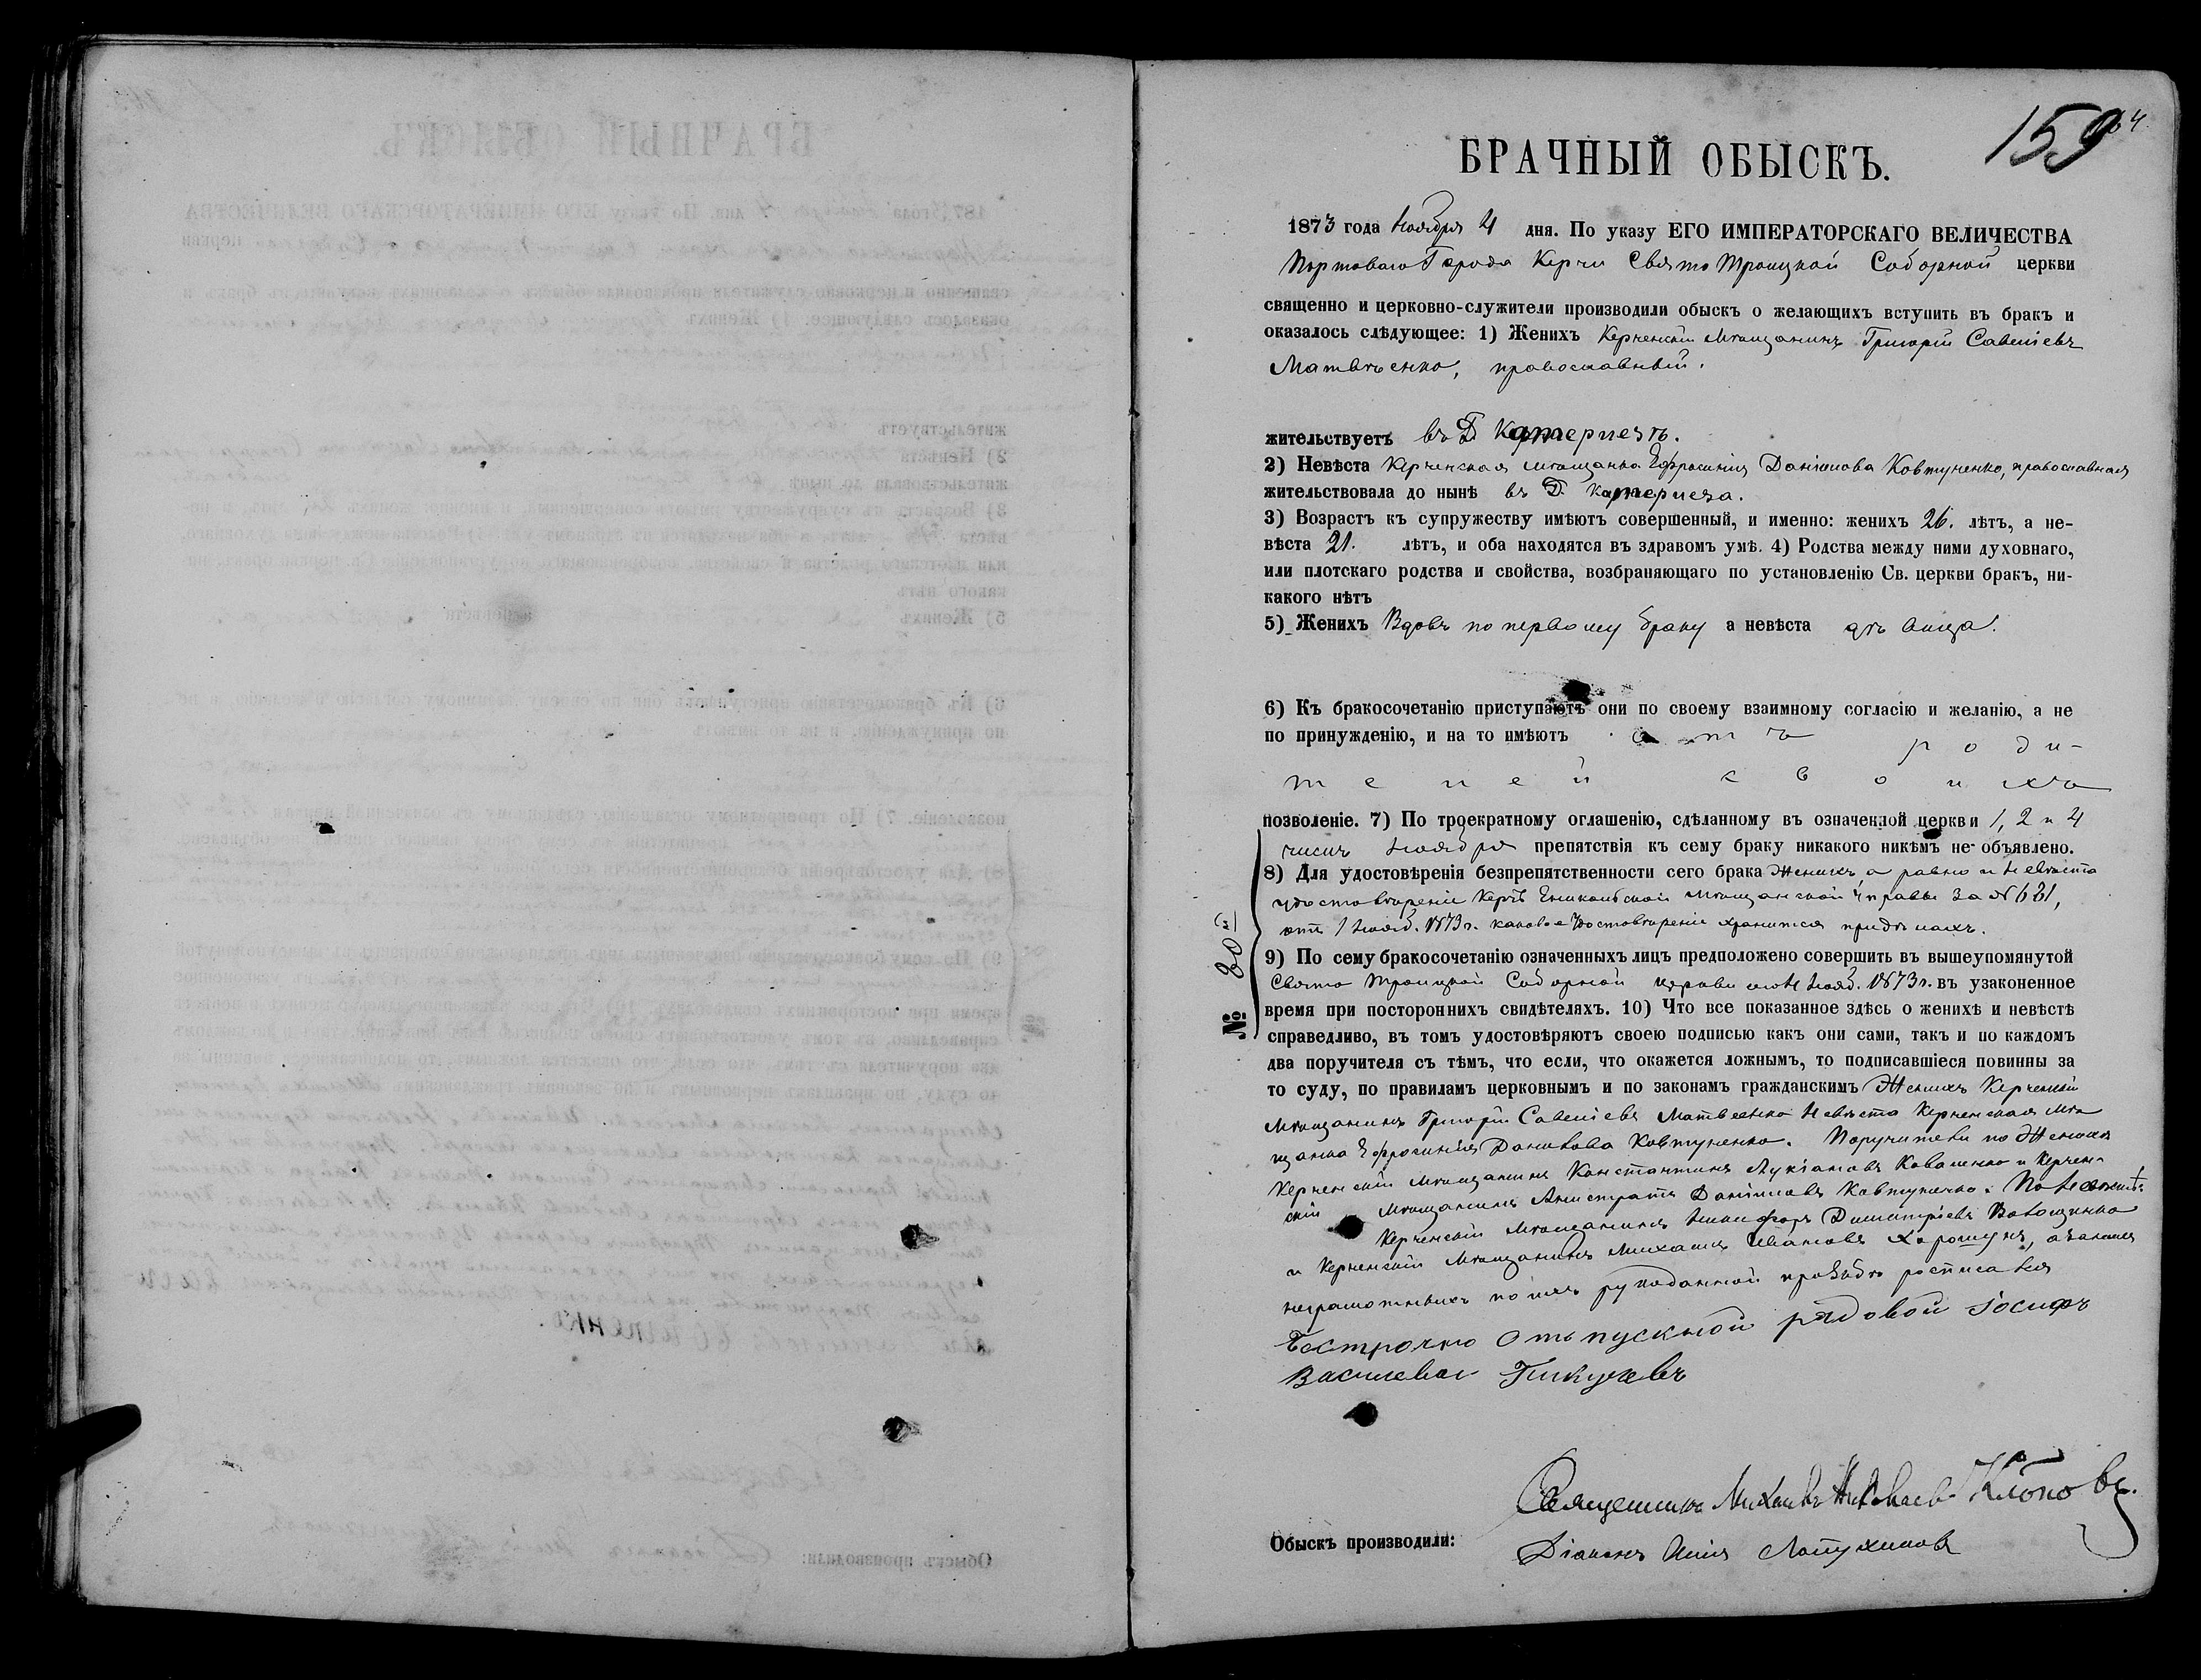 159
БРАЧНЫЙ ОБЫСКЪ.
1873 года Ноября 4 дня. По указу ЕГО ИМПЕРАТОРСКАГО ВЕЛИЧЕСТВА
Портоваго Города Керчи Свято Троицкой Соборной церкви
священно и церковно-служители производили обыскъ о желающихъ вступить въ бракъ и
оказалось слѣдующее: 1) Женихъ Керченскій мѣщанинъ Григорій Савеліевъ
Матвѣенко, православный.
жительствуетъ въ Д. Катерлезѣ.
2) Невѣста Керченская мѣщанка Ефросинія Даніилова Ковтуненко, православная
жительствовала до нынѣ въ Д. Катерлеза.
3) Возрастъ къ супружеству имѣютъ совершенный, и именно: женихъ 26. лѣтъ, а не-
вѣста 21. лѣтъ, и оба находятся въ здравомъ умѣ. 4) Родства между ними духовнаго,
или плотскаго родства и свойства, возбраняющаго по установленію Св. церкви бракъ, ни-
какого нѣтъ
5) Женихъ Вдовъ по первому браку а невѣста дѣвица.
6) Къ бракосочетанію приступаютъ они по своему взаимному согласію и желанію, а не
по принужденію, и на то имѣютъ отъ роди-
телей своихъ
позволеніе. 7) По троекратному оглашенію, сдѣланному въ означенной церкви 1, 2 и 4
числъ Ноября препятствія къ сему браку никакого никѣмъ не объявлено.
8) Для удостовѣренія безпрепятственности сего брака Женихъ, а равно и Невѣста
удостовѣреніе Керчь Еникольской мѣщанской Управы за № 631,
отъ 1 Нояб. 1873 г. каковое Удостовѣреніе хранится при
№ 80й
9) По сему бракосочетанію означенныхъ лицъ предположено совершить въ вышеупомянутой
Свято Троицкой Соборной церкви Нояб. 1873 г. въ узаконенное
время при постороннихъ свидѣтеляхъ. 10) Что все показанное здѣсь о женихѣ и невѣстѣ
справедливо, въ томъ удостовѣряютъ своею подписью какъ они сами, такъ и по каждомъ
два поручителя съ тѣмъ, что если, что окажется ложнымъ, то подписавшіеся повинны за
то суду, по правиламъ церковнымъ и по законамъ гражданскимъ Женихъ Керченскій
Мѣщанинъ Григорій Савеліевъ Матвеенко Невѣста Керченская мѣ
щанка Ефросинія Данилова Ковтуненко. Поручители по Женихѣ
Керченскій мѣщанинъ Константинъ Лукіановъ Коваленко и Керчен-
скій мѣщанинъ Даніиловъ Ковтуненко. По Невѣстѣ
Керченскій мѣщанинъ Никифоръ Димитріевъ
и Керченскій мѣщанинъ Михаилъ Ивановъ Хорошунъ, а за
неграмотныхъ по ихъ рукоданной прозьбѣ росписался
Бестрочно отъпускной рядовой Іосифъ
Василевъ
Священникъ Михаилъ Николаевъ Клоповъ.
Обыскъ производили:
Діаконъ Илія Лотухиновъ